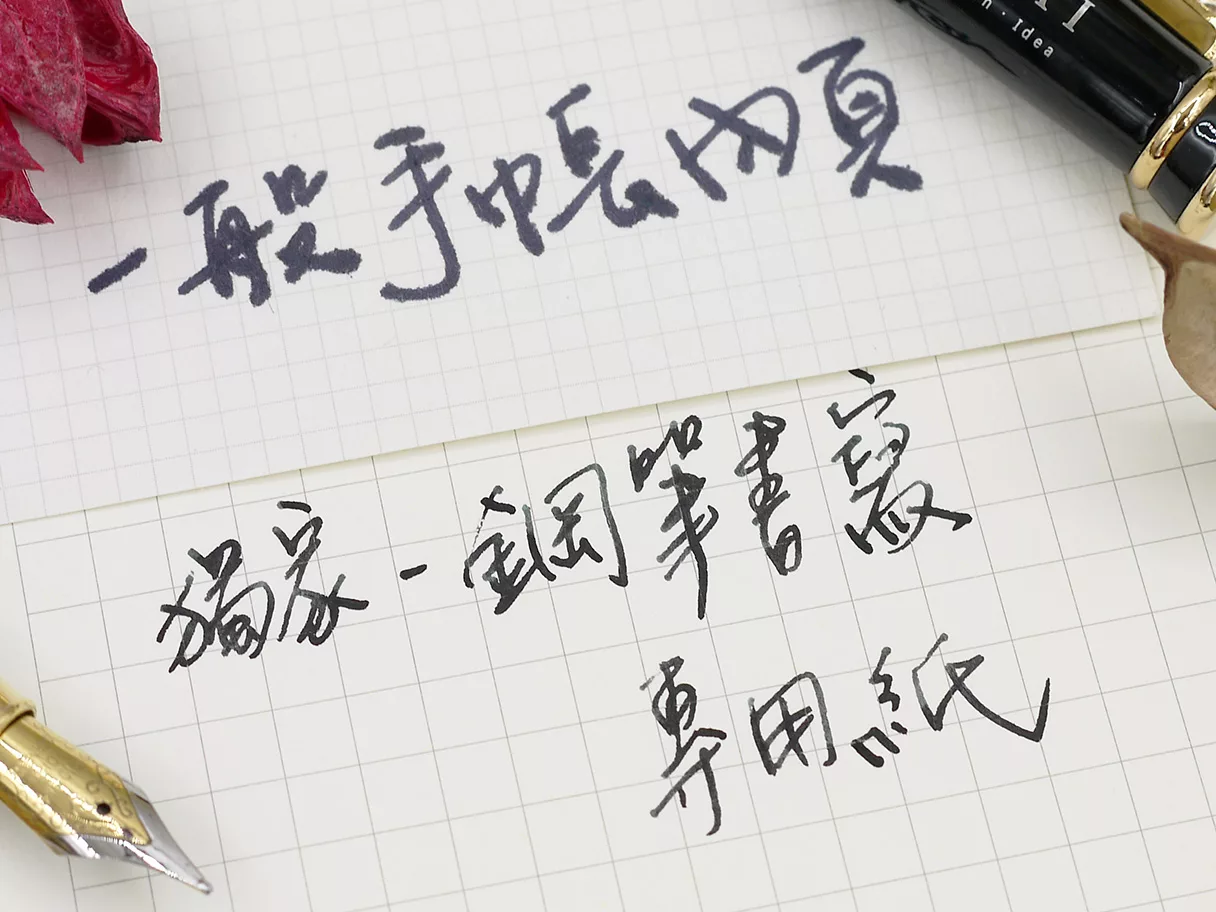 n · Idea
一般手帳內頁
獨家-鋼筆書寫
專用紙